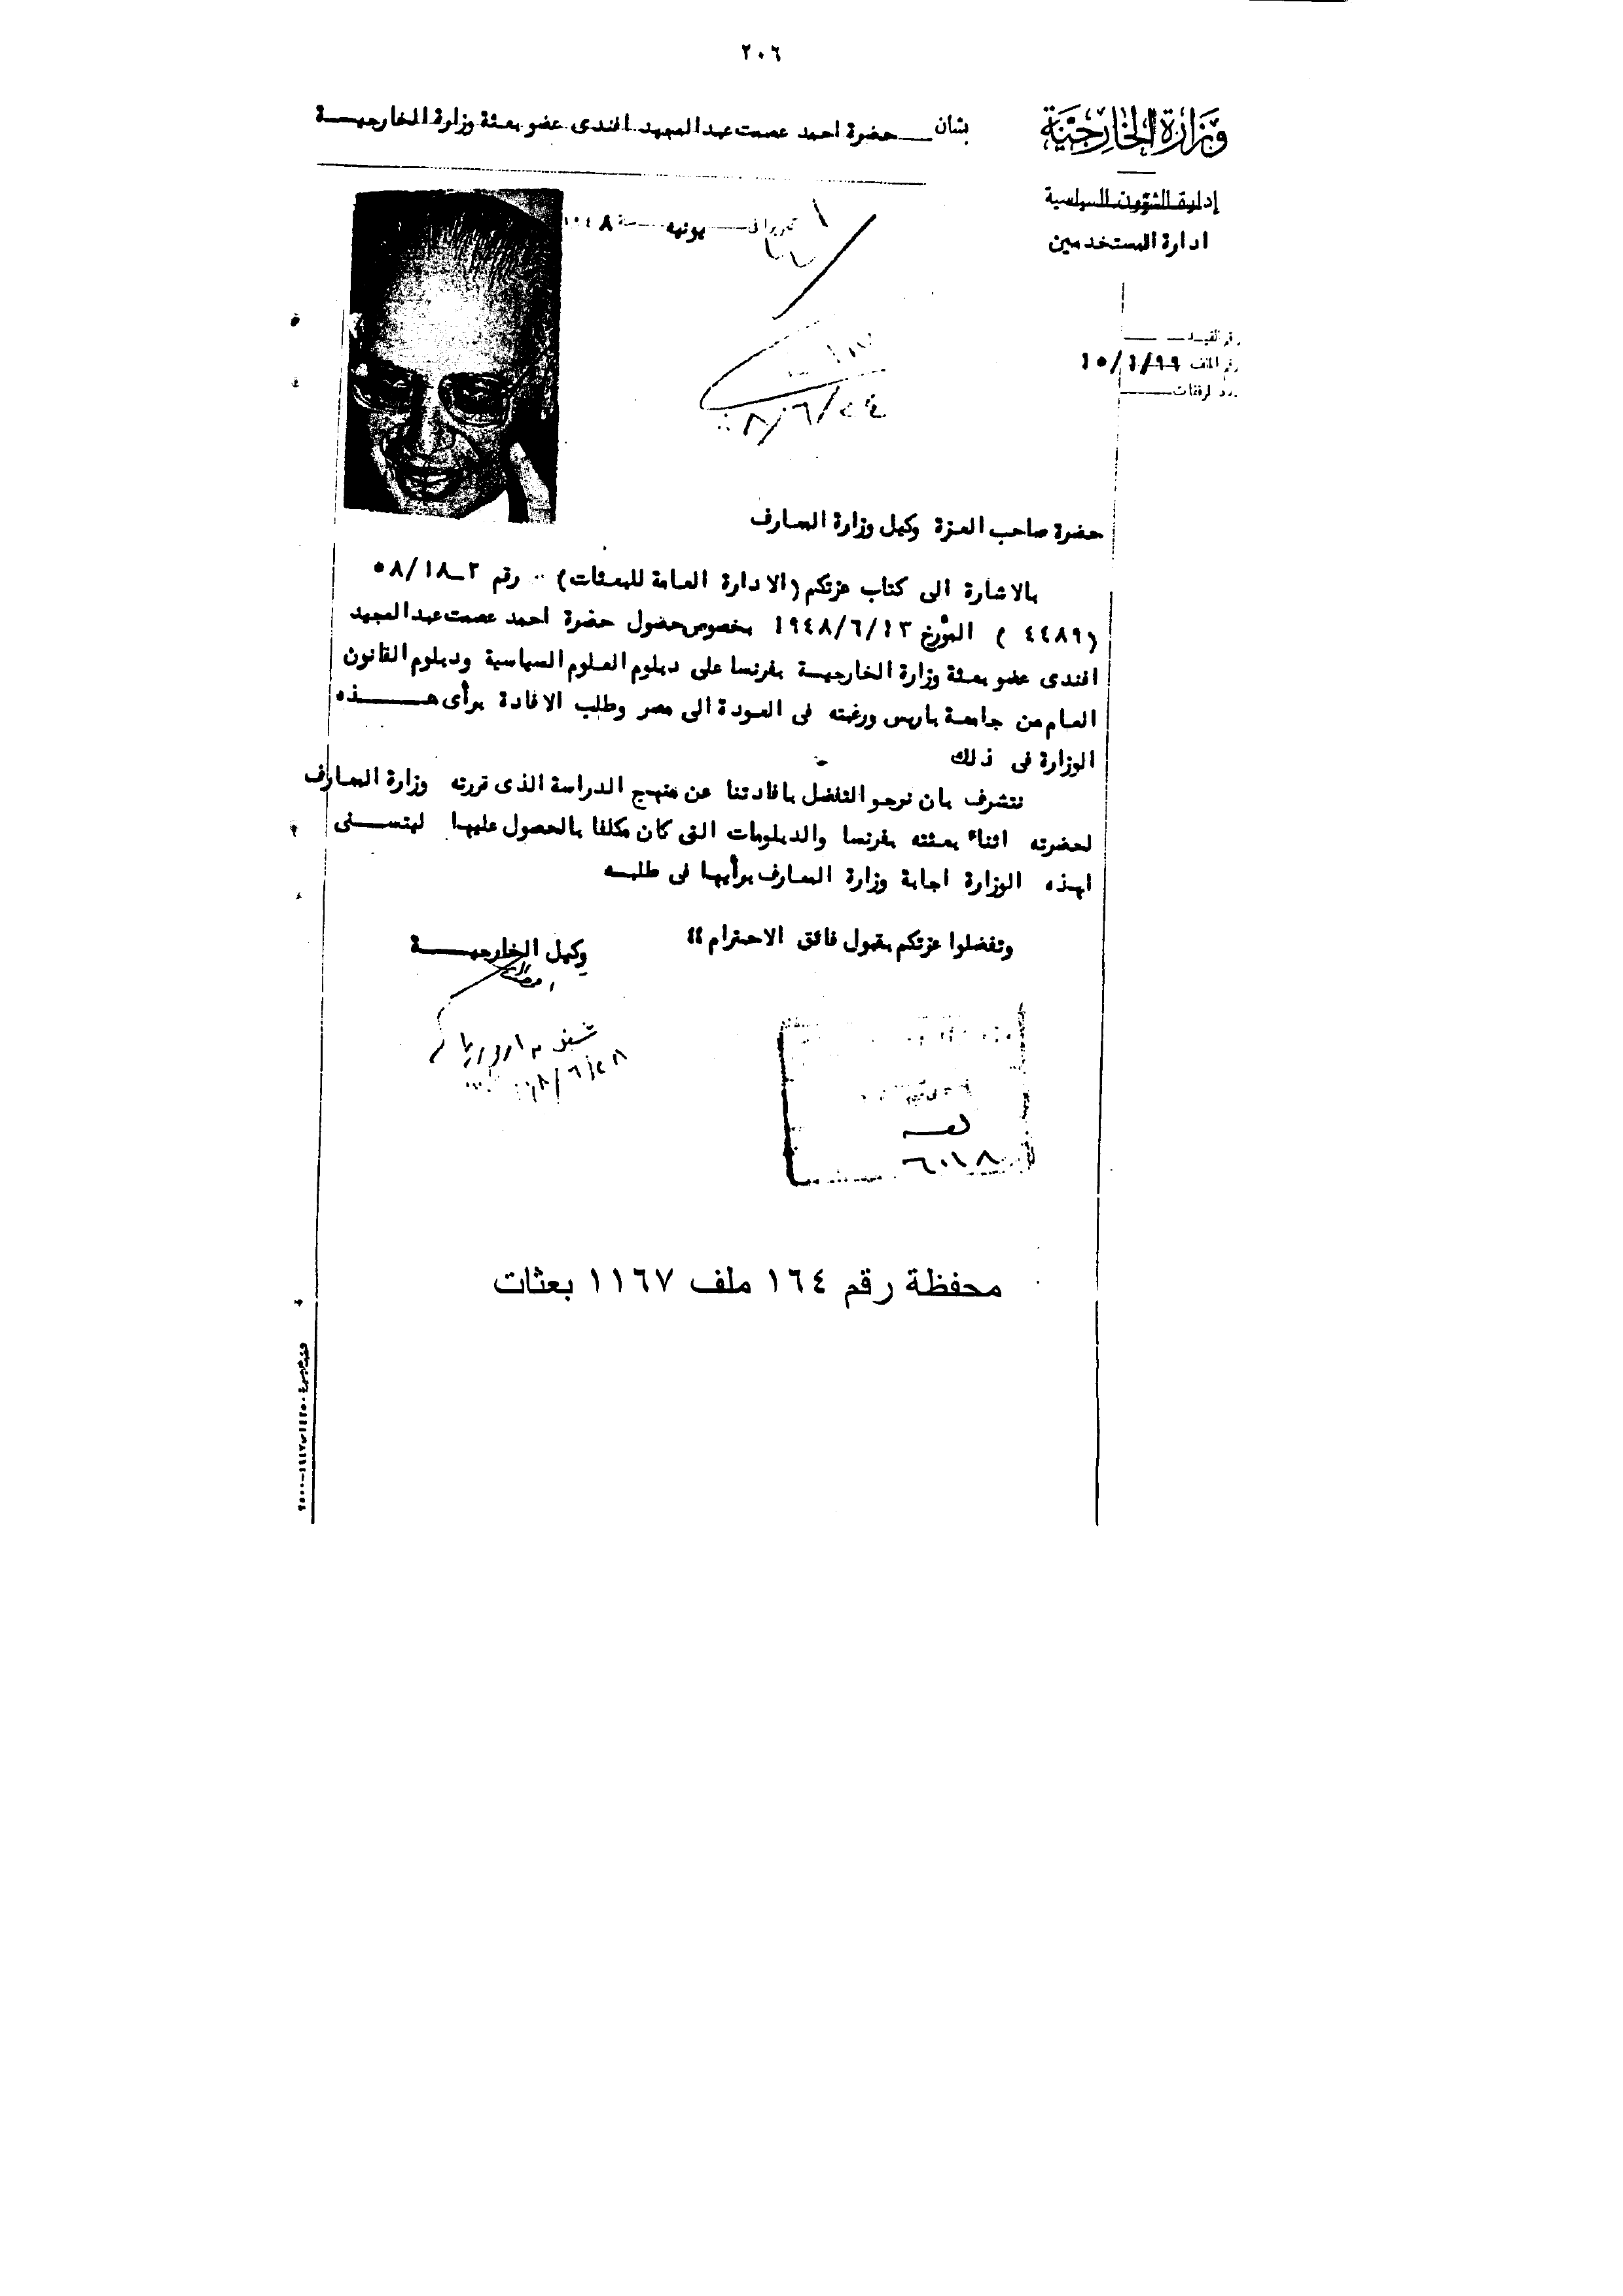 ٢٠٦
وزارة الخارجية
إدارة الشؤون السياسية
ادارة المستخدمين
بشأن حضرة احمد عصمت عبد المجيد افندى عضو بعثة وزارة الخارجيــــة
تحريرا فى يونيه سنة
رقم القيد
رقم الملف
حضرة صاحب العزة وكيل وزارة المعارف
بالاشارة الى كتاب عزتكم (الادارة العامة للبعثات) رقم ٢ــ٥٨/١٨
(٤٤٨٩ ) المؤرخ ١٩٤٨/٦/١٣ بخصوص حضول حضرة احمد عصمت عبد المجيد
افندى عضو بعثة وزارة الخارجيــة بفرنسا على دبلوم العلوم السياسية ودبلوم القانون
العام من جامعة باريس ورغبته فى العودة الى مصر وطلب الافادة برأى هــــــذه
الوزارة فى ذلك
نتشرف بان نرجو التفضل بافادتنا عن منهج الدراسة الذى قررته وزارة المعارف
لحضرته اثناء بعثته بفرنسا والدبلومات التى كان مكلفا بالحصول عليها ليتســــنى
لهذه الوزارة اجابة وزارة المعارف برأيها فى طلبــه
وتفضلوا عزتكم بقبول فائق الاحترام ،،
وكيل الخارجيــــــة
محفظة رقم ١٦٤ ملف ١١٦٧ بعثات